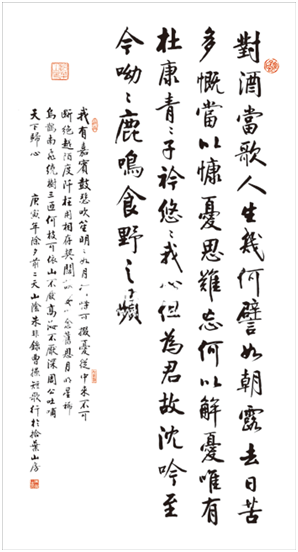 對酒當歌人生幾何譬如朝露去日苦
多慨當以慷憂思難忘何以解憂唯有
杜康青々子衿悠々我心但為君故沈吟至
今呦々鹿鳴食野之蘋
我有嘉賓鼓瑟吹笙明々月時可掇憂從中來不可
斷絕越陌度阡枉用相存契闊念舊恩月明星稀
烏鵲南飛繞樹三匝何枝可依山不厭高海不厭深周公吐哺
天下歸心 庚寅年除夕前二天山陰朱非錄曹操短歌行於拾葉山房